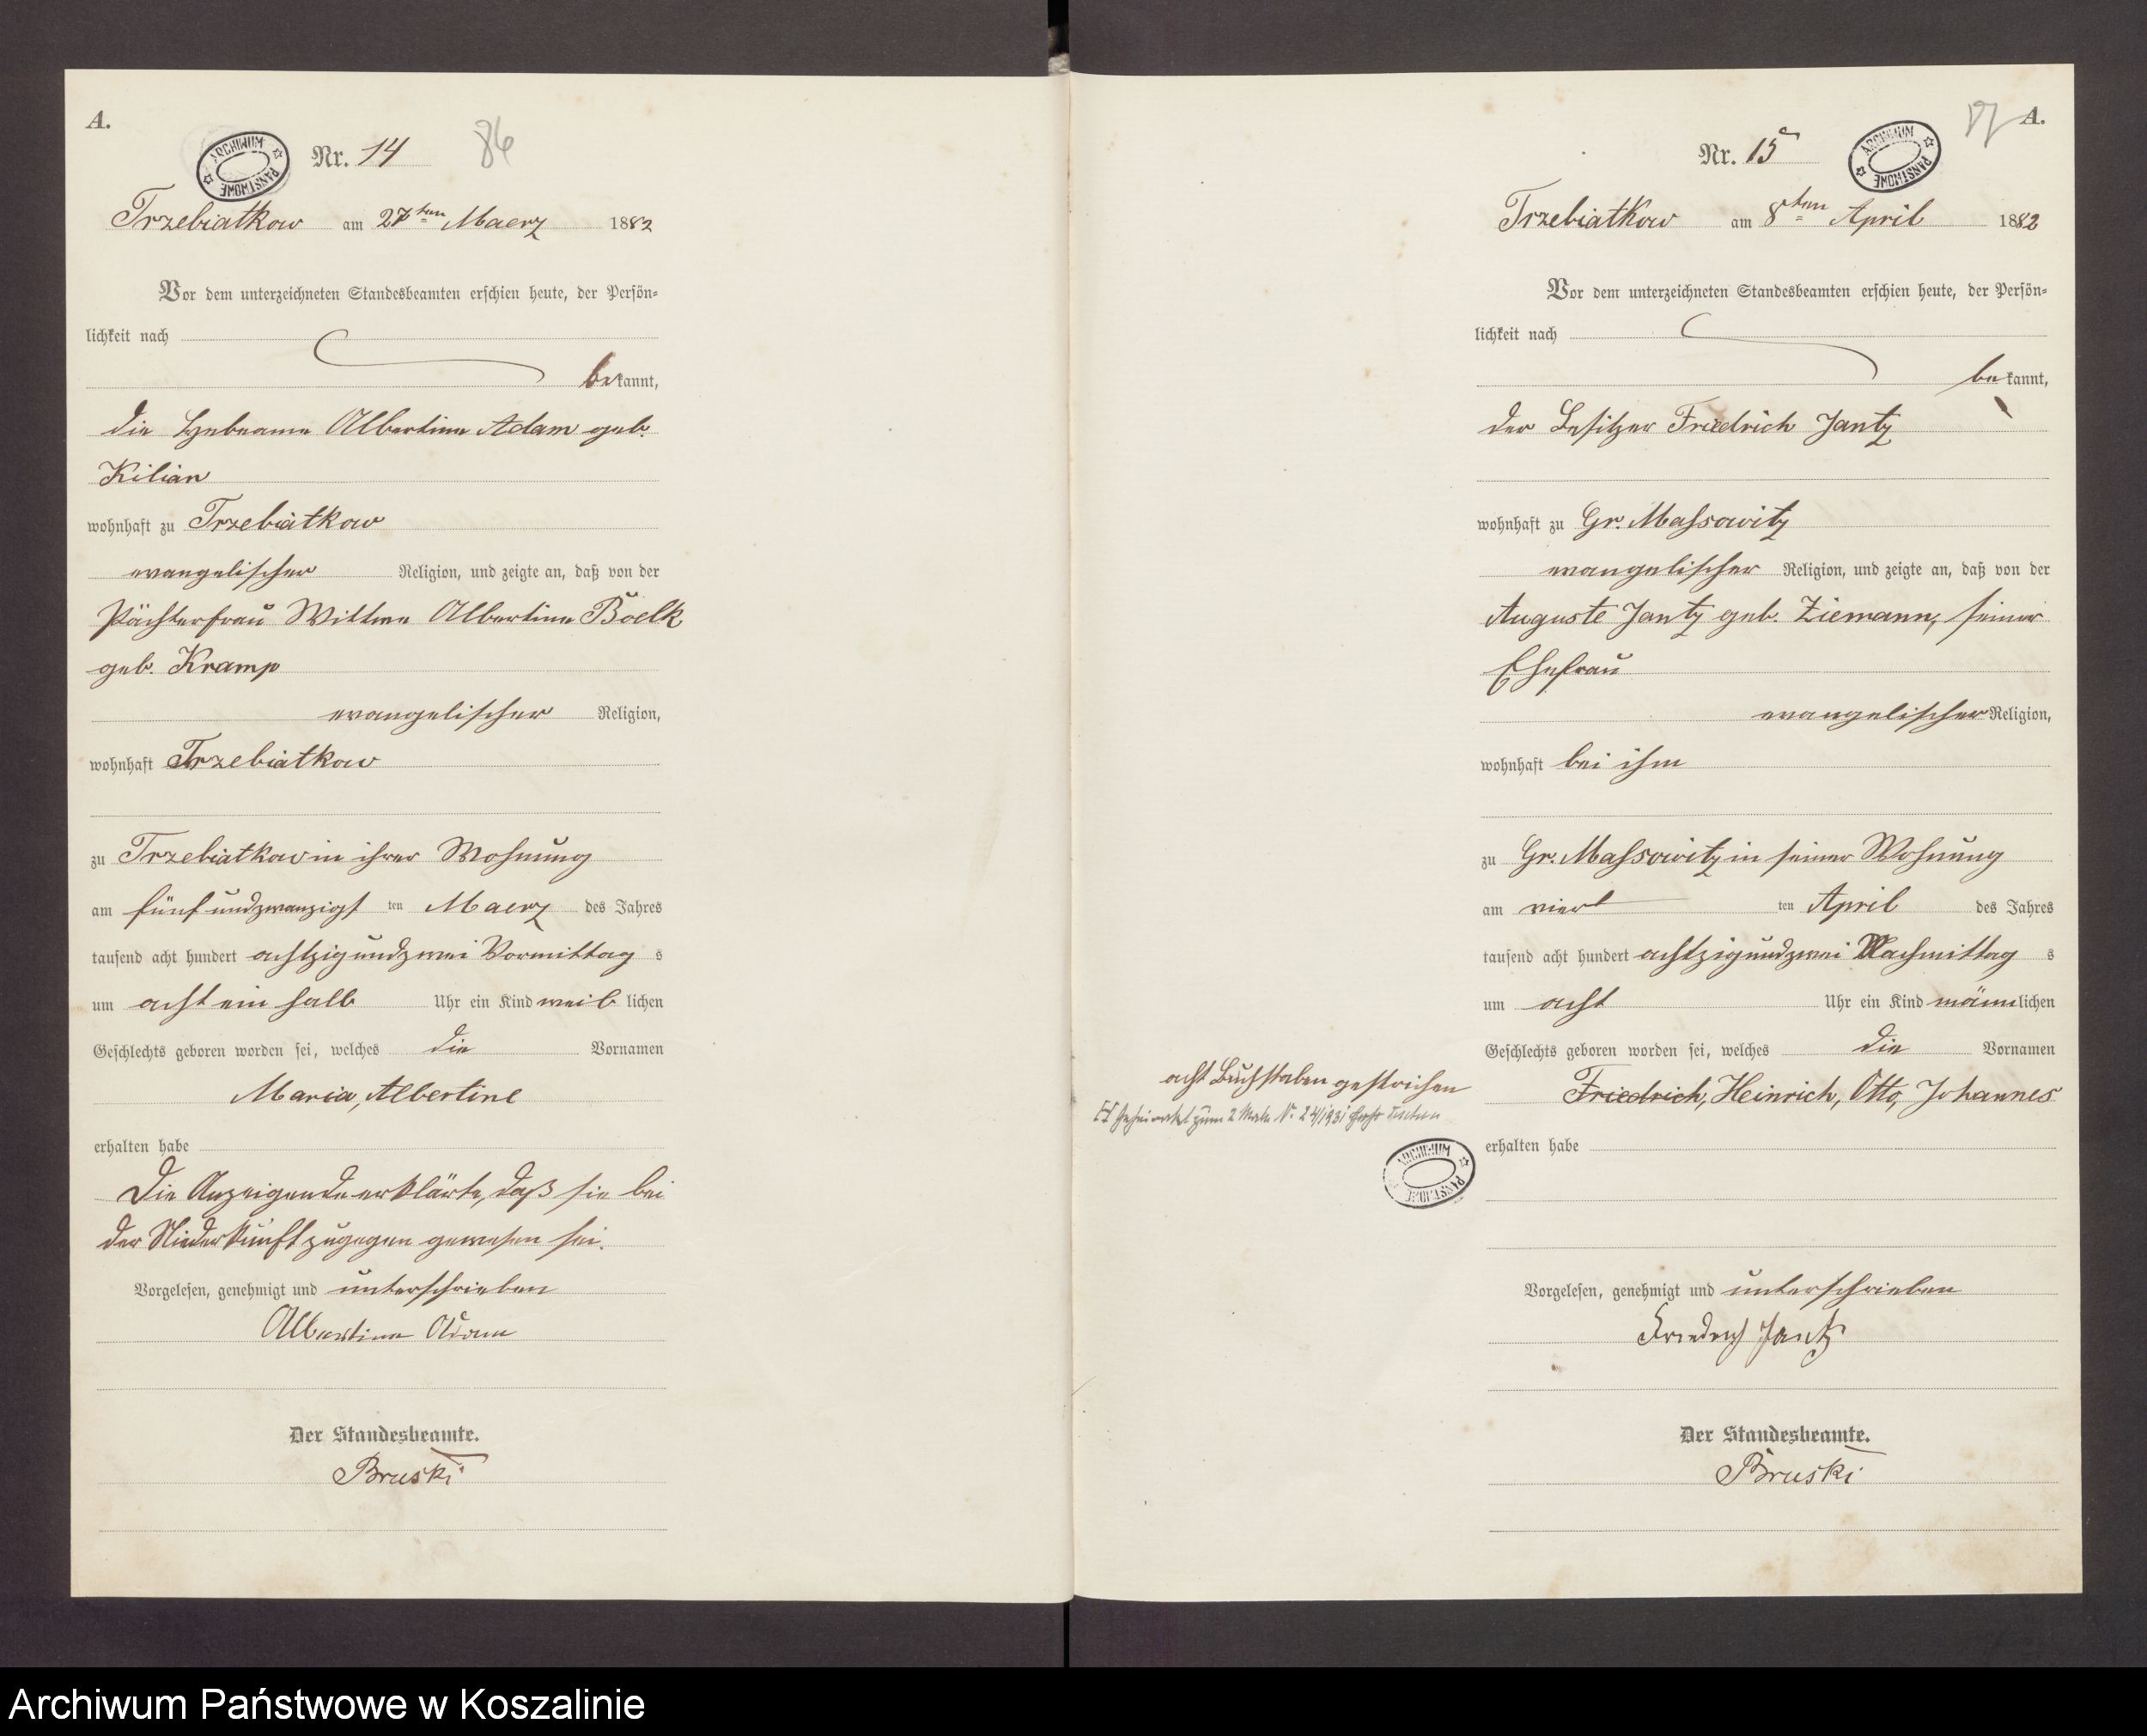 A.
ARCHIWUM PAŃSTWOWE
Nr. 14
86
Trzebiatkow am 27ten Maerz 1882
Vor dem unterzeichneten Standesbeamten erschien heute, der Persön-
lichkeit nach
bekannt,
die Hebeame Albertine Adam geb.
Kilian
wohnhaft zu Trzebiatkow
evangelischer Religion, und zeigte an, daß von der
Pächterfrau Wittwe Albertine Boelk
geb. Kramp
evangelischer Religion,
wohnhaft Trzebiatkow
zu Trzebiatkow in ihrer Wohnung
am fünfundzwanzigst ten Maerz des Jahres
tausend acht hundert achtzigundzwei Vormittag s
um acht ein halb Uhr ein Kind weib lichen
Geschlechts geboren worden sei, welches die Vornamen
Maria, Albertine
erhalten habe
Die Anzeigende erklärte, daß sie bei
der Niederkunft zugegen gewesen sei.
Vorgelesen, genehmigt und unterschrieben
Albertine Adam
Der Standesbeamte.
Bruski
87
A.
Nr. 15
ARCHIWUM PAŃSTWOWE
Trzebiatkow am 8ten April 1882
Vor dem unterzeichneten Standesbeamten erschien heute, der Persön-
lichkeit nach
bekannt,
der Besitzer Friedrich Jantz
wohnhaft zu Gr. Massowitz
evangelischer Religion, und zeigte an, daß von der
Auguste Jantz geb. Ziemann, seiner
Ehefrau
evangelischer Religion,
wohnhaft bei ihm
zu Gr. Massowitz in seiner Wohnung
am viert ten April des Jahres
tausend acht hundert achtzigundzwei Nachmittag s
um acht Uhr ein Kind männlichen
Geschlechts geboren worden sei, welches die Vornamen
Friedrich, Heinrich, Otto, Johannes
erhalten habe
acht Buchstaben gestrichen
zum 2 Male Nr. 24/1931
ARCHIWUM PAŃSTWOWE
Vorgelesen, genehmigt und unterschrieben
Friedrich Jantz
Der Standesbeamte.
Bruski
Archiwum Państwowe w Koszalinie